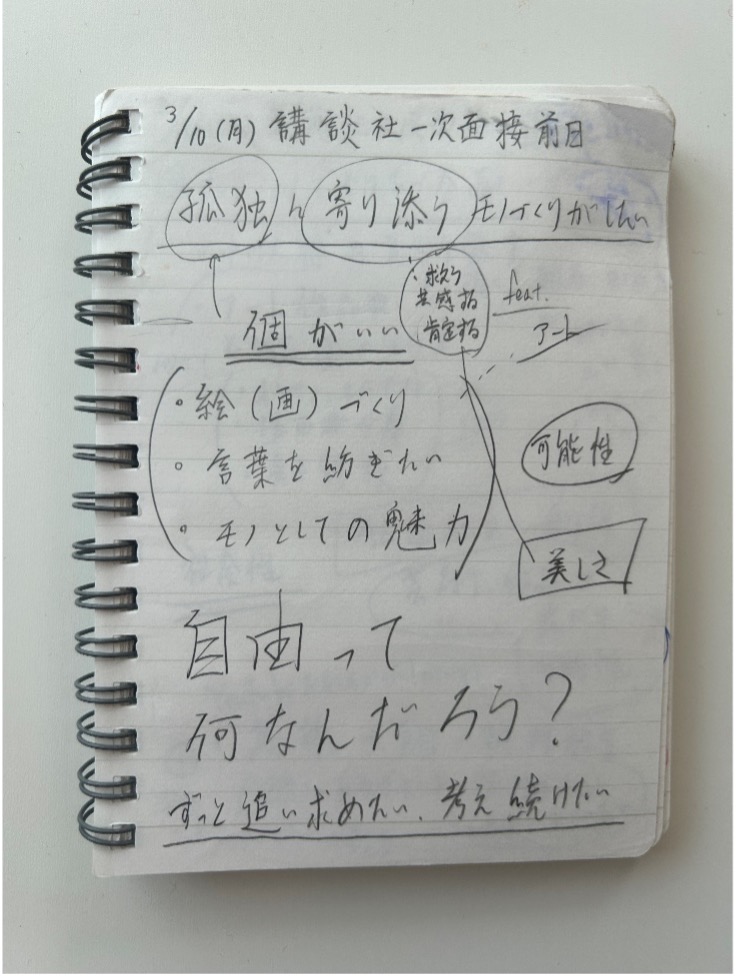 3/10(月) 講談社一次面接前日
孤独に寄り添うモノづくりがしたい
・救う
共感する
肯定する
feat.
アート
個がいい
・絵(画)づくり
・言葉を紡ぎたい
・モノとしての魅力
可能性
美しさ
自由って
何なんだろう?
ずっと追い求めたい、考え続けたい